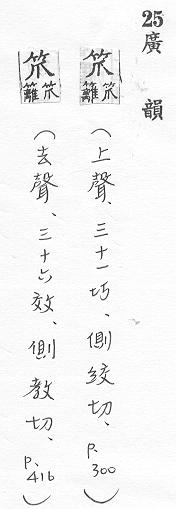 25 廣韻
笊 笊籬 （上聲、三十一巧、側絞切、p.300）
笊 笊籬 （去聲、三十六效、側教切、p.416）